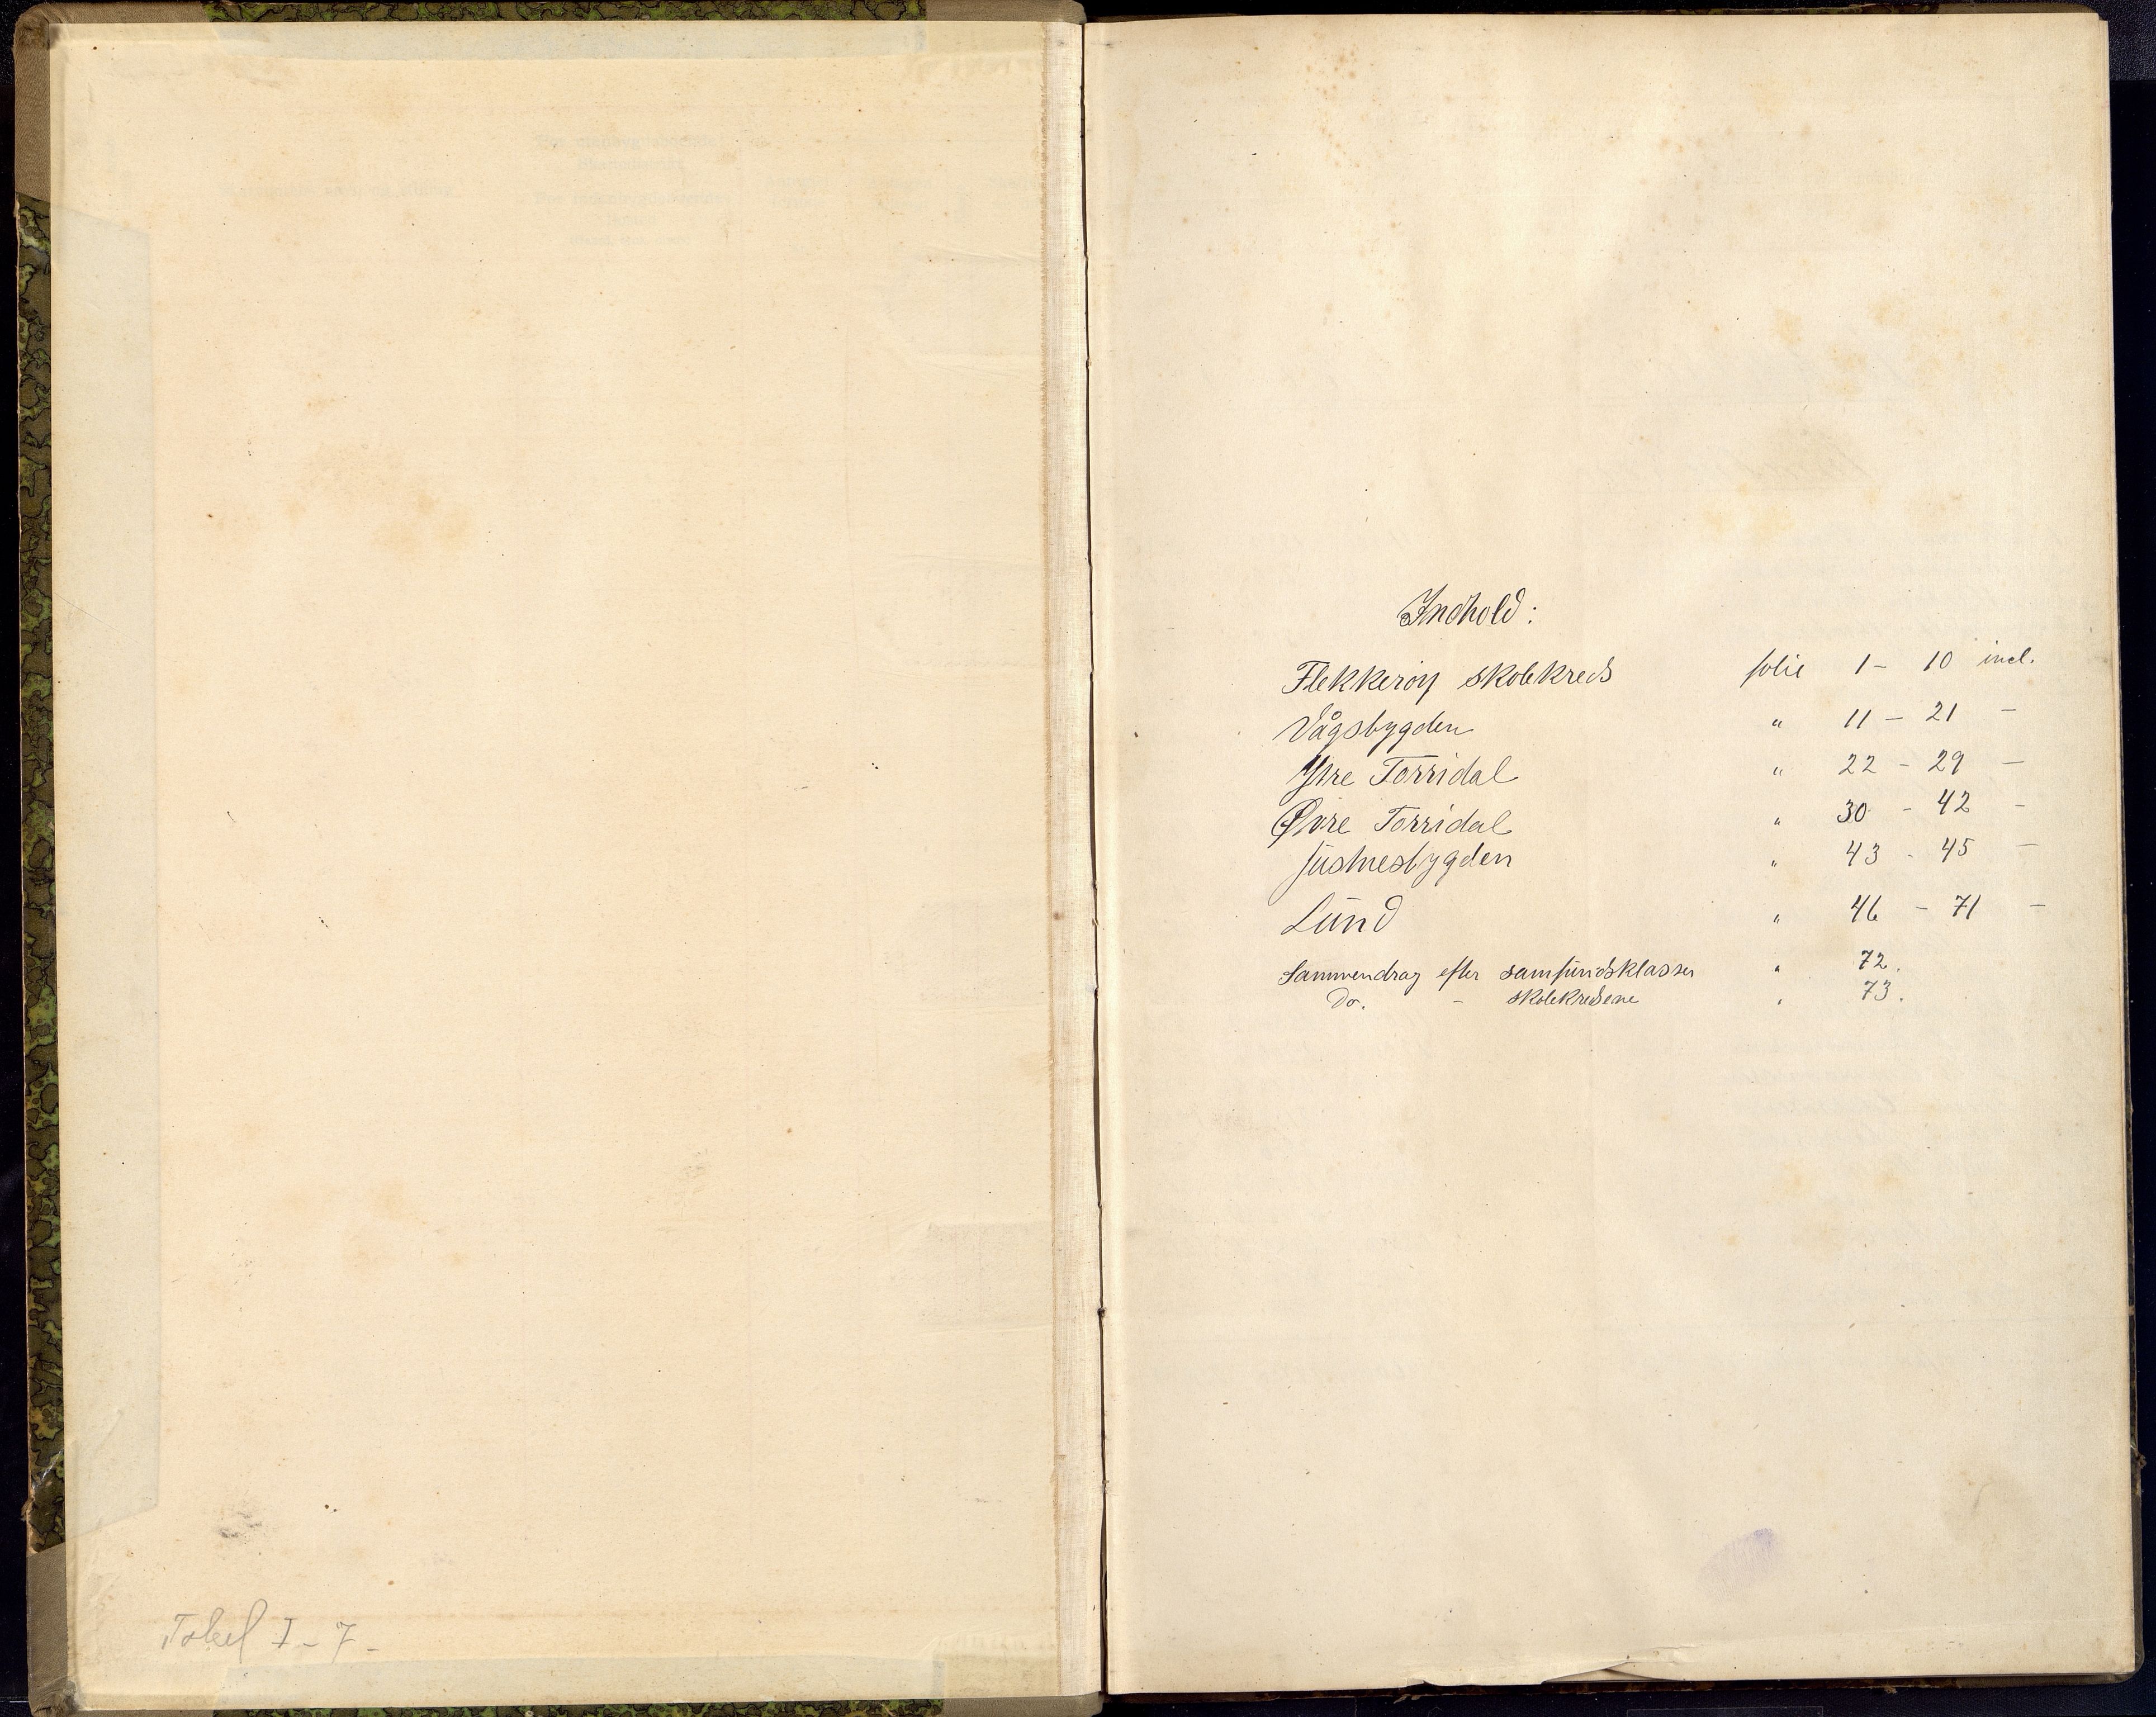 Tabel I - 7 -
Indhold:
Flekkerøy skolekreds folie 1 - 10 incl.
Vågsbygden " 11 - 21 -
Ytre Torridal " 22 - 29 -
Øvre Torridal " 30 - 42 -
Justnesbygden " 43 - 45 -
Lund " 46 - 71 -
Sammendrag efter samfundsklasser " 72.
Do. - skolekredsene " 73.